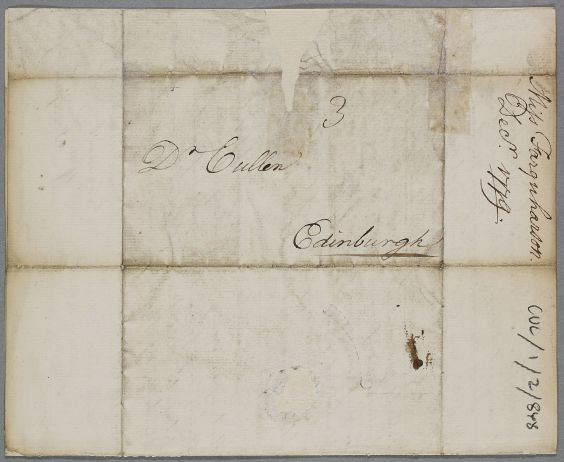 3
Dr Cullen
Edinburgh
Miss Farquharson.
Decr. 1779.
CUL/1/2/848